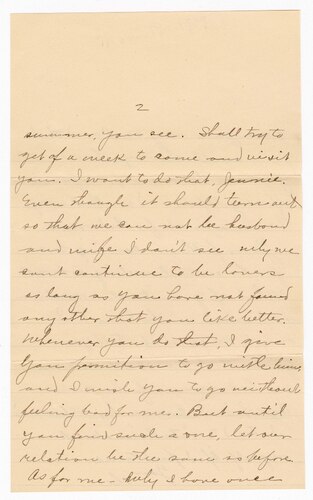 2
summer, you see. Shall try to
get of a week to come and visit
you. I want to do that, Jennie.
Even though it should turn out
so that we can not be husband
and wife I don't see why we
cant continue to be lovers
as long as you have not found
any other that you like better.
Whenever you do that, I give
you permition to go with him,
and I wish you to go without
feeling bad for me. But until
you find such a one, let our
relation be the same as before.
As for me - why I have once